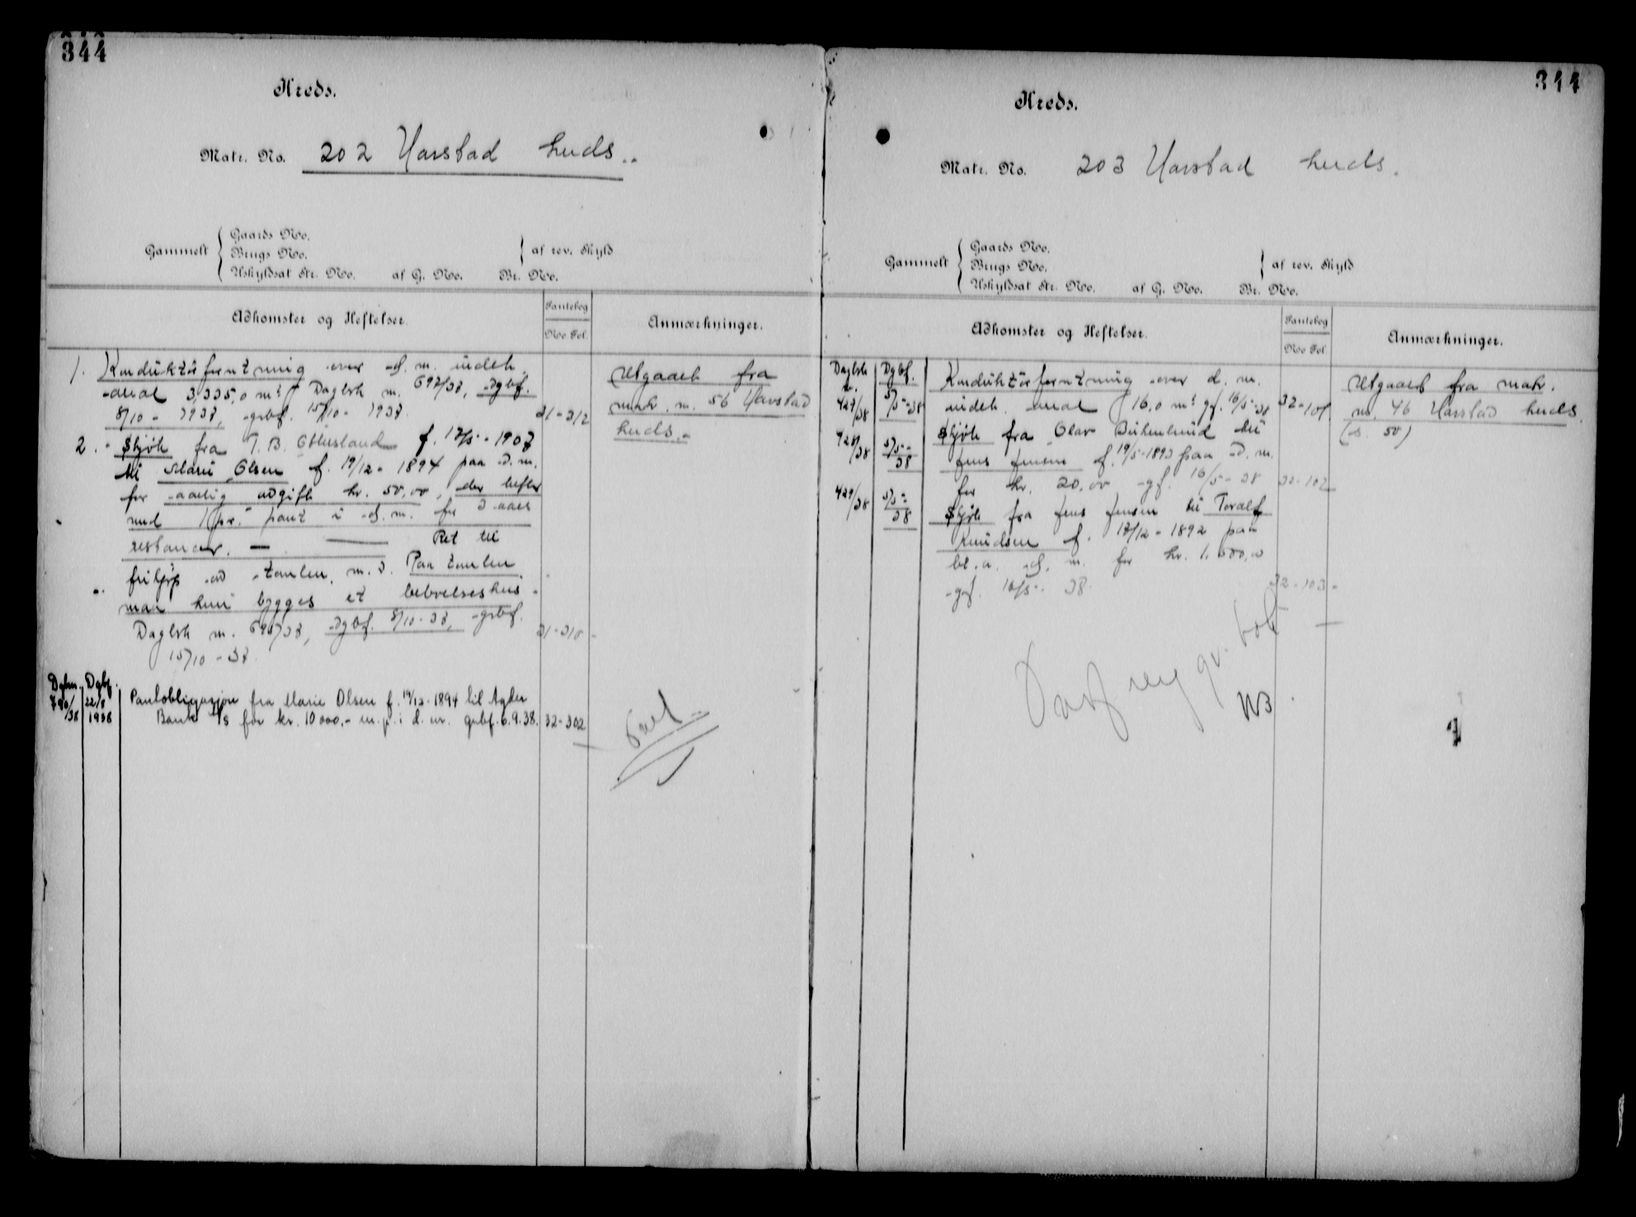 344
Kreds.
Matr. No. 202 Harstad
Gammelt
Gaards No.
Brugs No.
Uskyldsat Str. No. af G. No. Br. No.
af rev. Skyld
Adkomster og Heftelser.
Pantebog
No Fol.
Anmærkninger.
1. Konduktørforretning over d. m. indeh.
areal 3,335,0 m² Dagbk n. 697/37, dgbf.
8/10 - 1937, grbf. 15/10 - 1937.
31-312
Utgaaet fra
matr. n. 56 Harstad
2. Skjøte fra T. B. f. 17/5 - 1907
til Marie Olsen f. 19/12 - 1894 paa d. m.
for aarlig avgift kr. 50,00, der hefter
med 1 pr. pant i d. m. for 3 aars
restancer. — Ret til
av tomten m. v. Paa tomten
maa kun bygges et beboelseshus.
Dagbk n. 698/37, dgbf. 8/10-37, grbf.
15/10 - 37.
Dgbn. Dgbf.
790/38 22/8 1938
Pantobligasjon fra Marie Olsen f. 19/12-1894 til Agder
Bank A/S for kr. 10 000,- m. p. i d. nr. grbf. 6.9.38. 32-302
344
Kreds.
Matr. No. 203 Harstad
Gammelt
Gaards No.
Brugs No.
Uskyldsat Str. No. af G. No. Br. No.
af rev. Skyld
Adkomster og Heftelser.
Pantebog
No Fol.
Anmærkninger.
Dagbk n. Dgbf.
427/38 5/5-38
Konduktørforretning over d. m.
indeh. areal 16,0 m² gf. 16/5-38
32-101
Utgaaet fra matr.
nr. 46 Harstad
428/38 5/5-38
Skjøte fra Olav til
Jens Jensen f. 19/5-1893 paa d. m.
for kr. 20,00 gf. 16/5-38
32-102
429/38 5/5-38
Skjøte fra Jens Jensen til Toralf
Knudsen f. 17/12-1892 paa
bl. a. d. m. for kr. 1.500,00
gf. 16/5-38.
32-103
NB